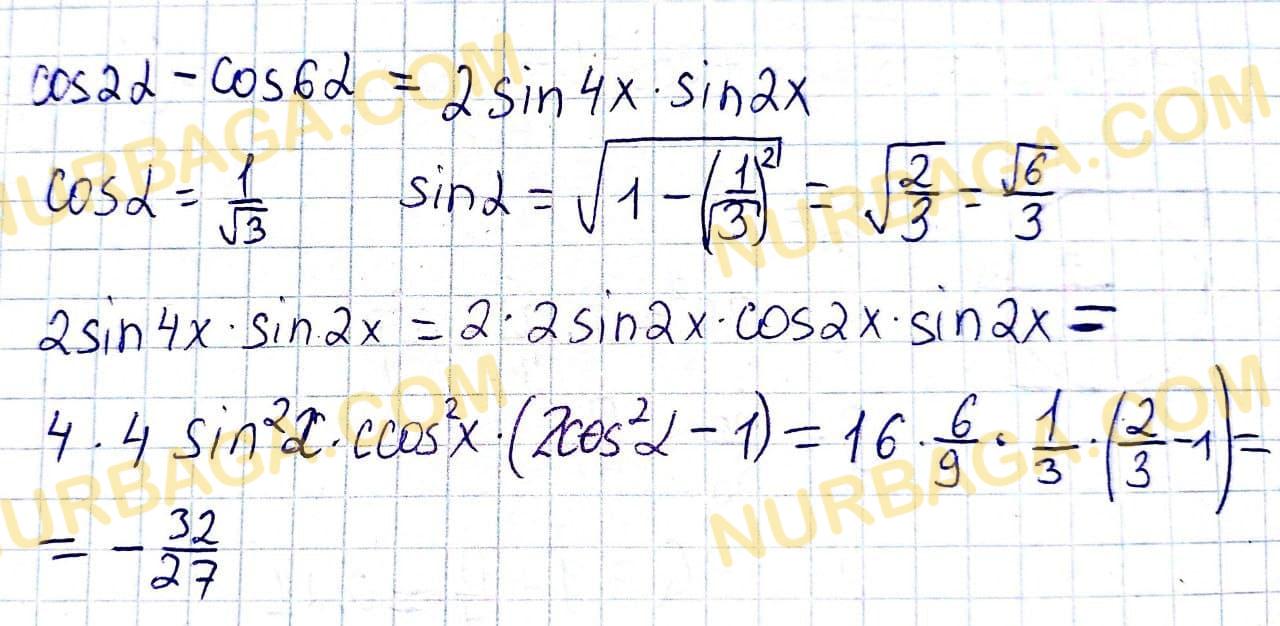 cos2α - cos6α = 2sin4x · sin2x
cosα = 1/√3    sinα = √(1 - (1/√3)²) = √(2/3) = √6/3
2sin4x · sin2x = 2 · 2sin2x · cos2x · sin2x =
4 · 4 sin²x · ccos²x · (2cos²α - 1) = 16 · 6/9 · 1/3 · (2/3 - 1) =
= - 32/27
NURBAGA.COM
NURBAGA.COM
NURBAGA.COM
NURBAGA.COM